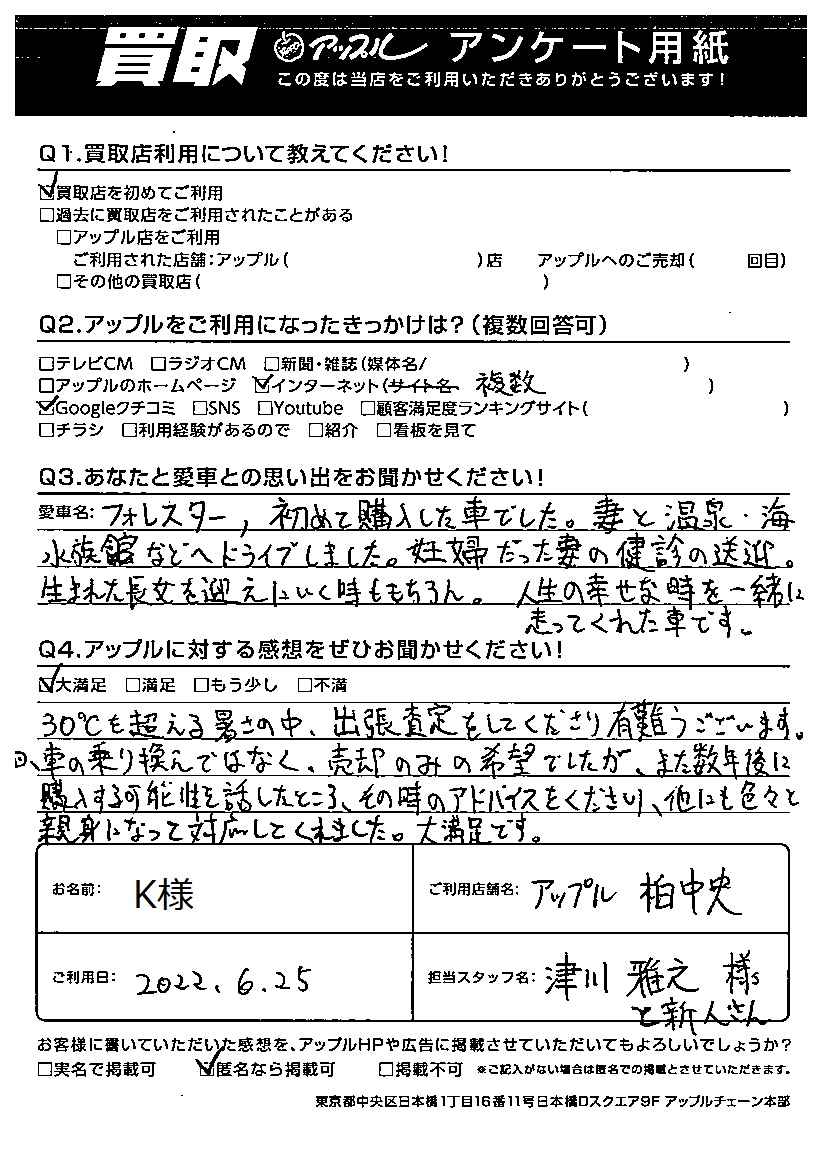 買取 アップル アンケート用紙
この度は当店をご利用いただきありがとうございます!
Q1.買取店利用について教えてください!
☑買取店を初めてご利用
□過去に買取店をご利用されたことがある
□アップル店をご利用
ご利用された店舗:アップル( )店 アップルへのご売却( 回目)
□その他の買取店( )
Q2.アップルをご利用になったきっかけは?(複数回答可)
□テレビCM □ラジオCM □新聞・雑誌(媒体名/ )
□アップルのホームページ ☑インターネット(サイト名 複数 )
☑Googleクチコミ □SNS □Youtube □顧客満足度ランキングサイト( )
□チラシ □利用経験があるので □紹介 □看板を見て
Q3.あなたと愛車との思い出をお聞かせください!
愛車名: フォレスター, 初めて購入した車でした。妻と温泉・海
水族館などへドライブしました。妊婦だった妻の健診の送迎。
生まれた長女を迎えにいく時ももちろん。 人生の幸せな時を一緒に
走ってくれた車です。
Q4.アップルに対する感想をぜひお聞かせください!
☑大満足 □満足 □もう少し □不満
30℃を超える暑さの中、出張査定をしてくださり有難うございます。
車の乗り換えではなく、売却のみの希望でしたが、また数年後に
購入する可能性を話したところ、その時のアドバイスをくださり、他にも色々と
親身になって対応してくれました。大満足です。
お名前: K様 ご利用店舗名: アップル 柏中央
ご利用日: 2022.6.25 担当スタッフ名: 津川 雅之 様
と新人さん
お客様に書いていただいた感想を、アップルHPや広告に掲載させていただいてもよろしいでしょうか?
□実名で掲載可 ☑匿名なら掲載可 □掲載不可 ※ご記入がない場合は匿名での掲載とさせていただきます。
東京都中央区日本橋1丁目16番11号日本橋Dスクエア9F アップルチェーン本部